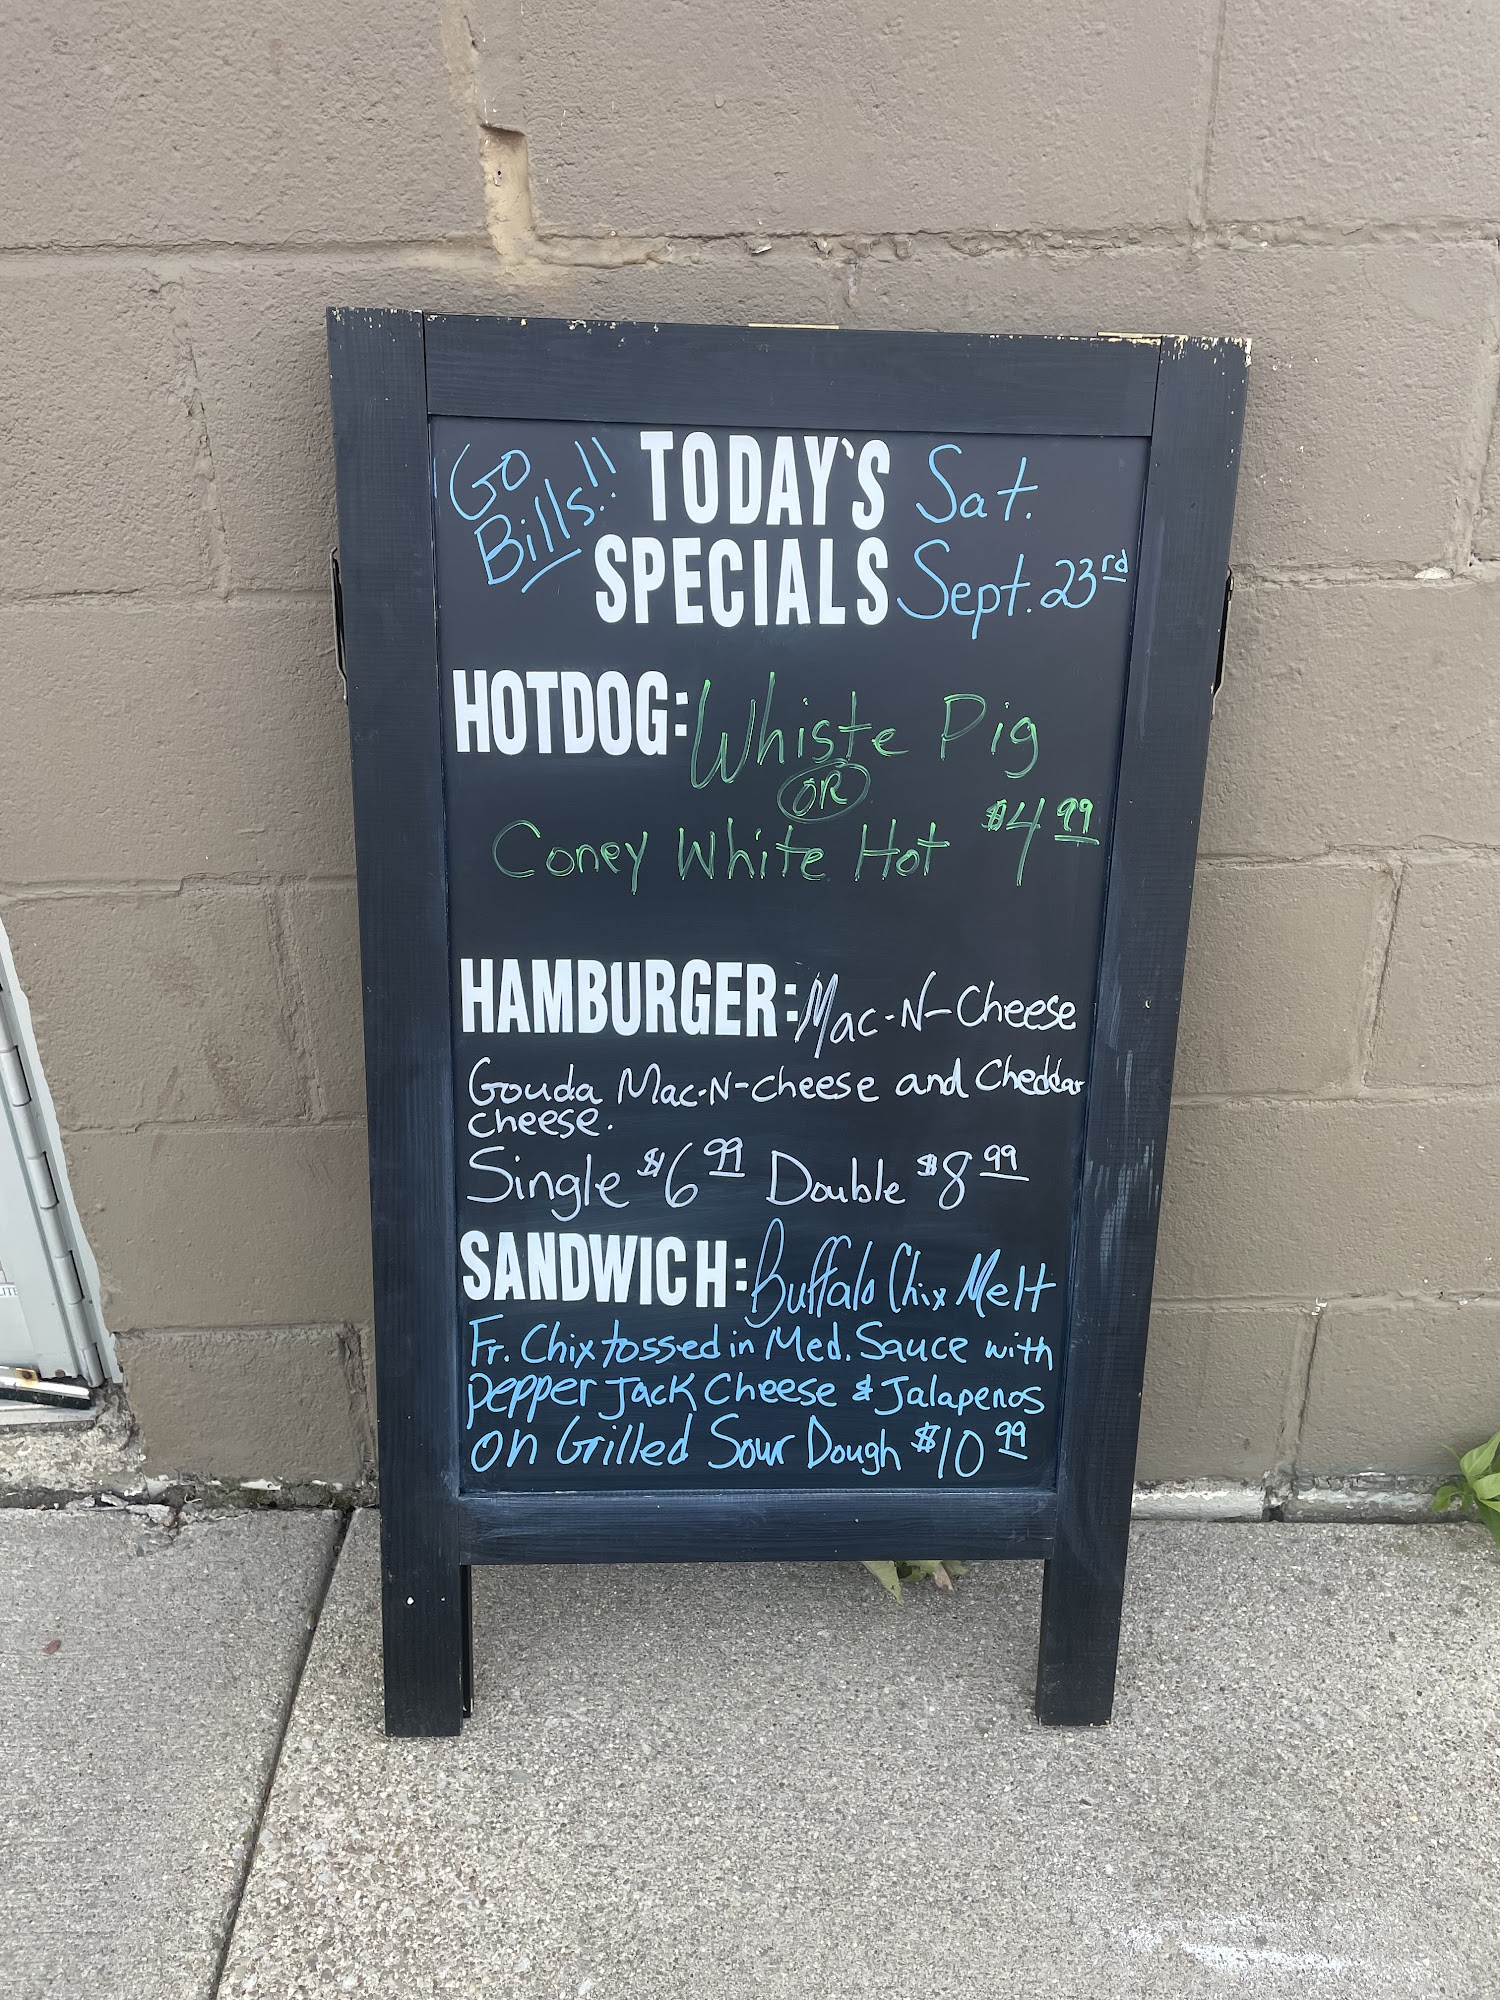 Go
Bills!!
TODAY'S
SPECIALS
Sat.
Sept. 23rd
HOTDOG: Whiste Pig
OR
Coney White Hot $4.99
HAMBURGER: Mac-N-Cheese
Gouda Mac-N-cheese and Cheddar
cheese.
Single $6.99 Double $8.99
SANDWICH: Buffalo Chix Melt
Fr. Chix tossed in Med. Sauce with
Pepper Jack Cheese & Jalapenos
on Grilled Sour Dough $10.99